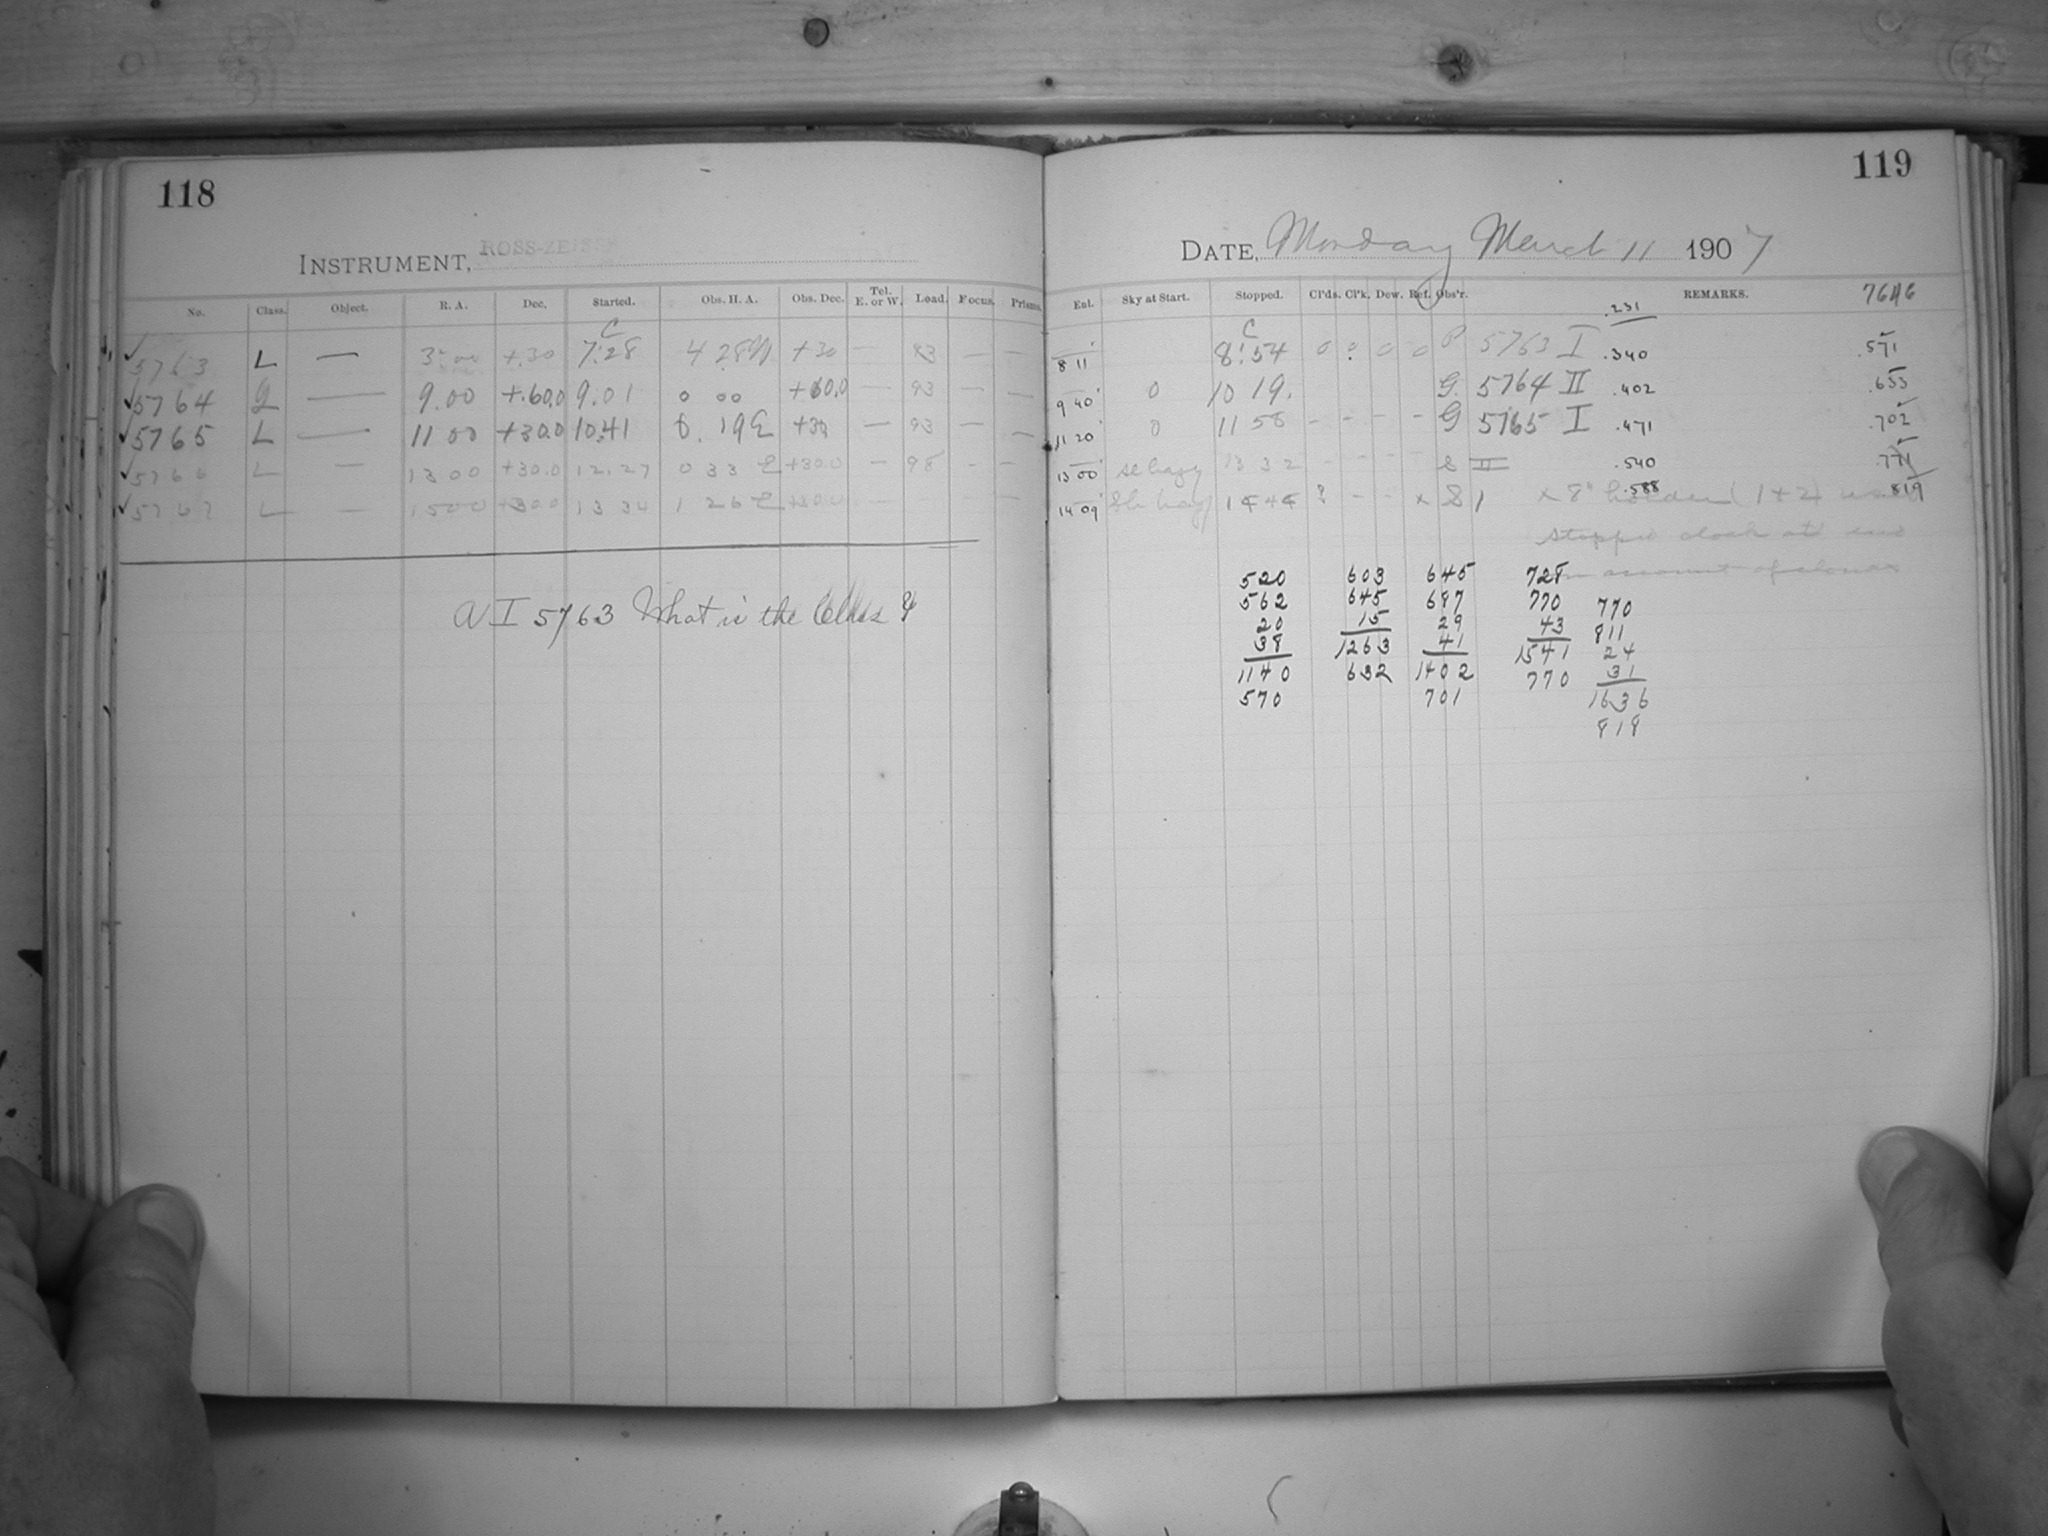 118
INSTRUMENT, ROSS-ZEISS
No. Class. Object. R. A. Dec. Started. Obs. H. A. Obs. Dec. Tel. E. or W. Load. Focus. Prisms.
C
✓ 5763 L — 3:00 +30 7:28 4 28 W +30 — 93 — —
✓ 5764 — 9.00 +60.0 9.01 0 00 +60.0 — 93 — —
✓ 5765 L — 11 00 +30.0 10.41 0. 19 E +30 — 93 — —
✓ 5766 L — 13 00 +30.0 12.27 0 33 E +30.0 — 98 - —
✓ 5767 L — 15 00 +30.0 13 34 1 26 E +30.0 —
A I 5763 What is the Class ?
119
DATE, Monday March 11 1907
Ent. Sky at Start. Stopped. Cl'ds. Cl'k. Dew. Ref. Obs'r. REMARKS. 7646
.231
C
8 11 8:54 0 0 0 0 P 5763 I .340 .571
9 40 0 10 19. G. 5764 II .402 .633
11 20 0 11 58 - - - - G 5765 I .471 .702
13 00 sl hazy 13 32 - - - - S II .540 .771
14 09 Sl hazy 14 44 ? - - x S 1 x 8" holder (1+2) .588 .819
stopped clock at end
on account of clouds
520 603 645 728
562 645 687 770 770
20 15 29 43 811
38 1263 41 1541 24
1140 632 1402 770 31
570 701 1636
818